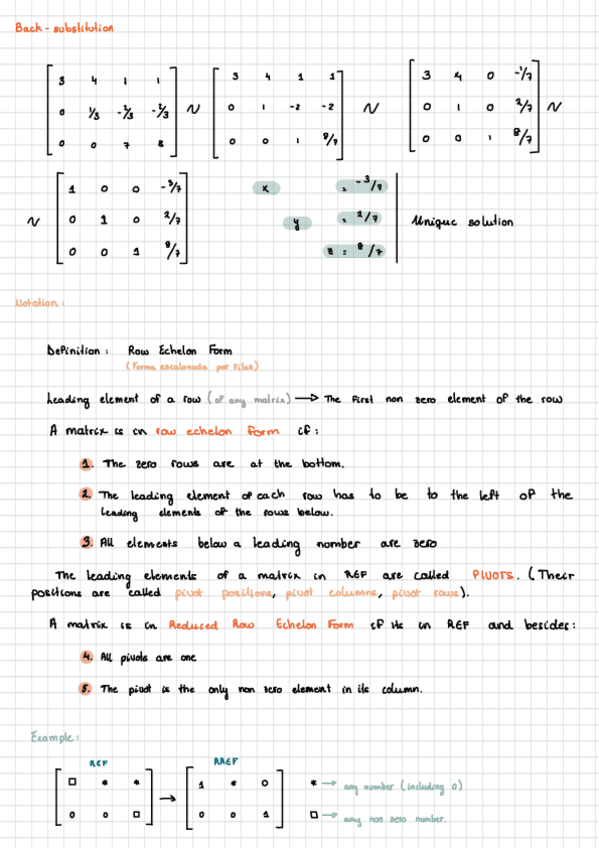 Back-substitution
3 4 1 1 3 4 1 1 3 4 0 -1/7
0 1/3 -2/3 -2/3 ~ 0 1 -2 -2 ~ 0 1 0 2/7 ~
0 0 7 8 0 0 1 8/7 0 0 1 8/7
1 0 0 -3/7 x = -3/7
~ 0 1 0 2/7 y = 2/7 Unique solution
0 0 1 8/7 z = 8/7
Notation:
Definition: Row Echelon Form
(Forma escalonada por files)
Leading element of a row (of any matrix) → The first non zero element of the row
A matrix is in row echelon form if:
1. The zero rows are at the bottom.
2. The leading element of each row has to be to the left of the
leading elements of the rows below.
3. All elements below a leading number are zero
The leading elements of a matrix in REF are called PIVOTS. (Their
positions are called pivot positions, pivot columns, pivot rows).
A matrix is in Reduced Row Echelon Form if its in REF and besides:
4. All pivots are one
5. The pivot is the only non zero element in its column.
Example:
REF RREF
□ * * → 1 * 0 * → any number (including 0)
0 0 □ 0 0 1 □ → any non zero number.